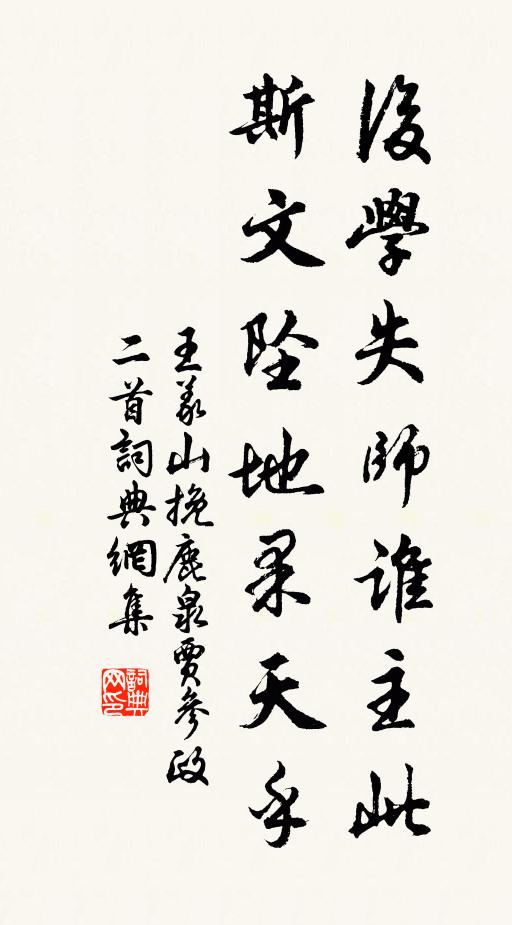 後學失師誰主此
斯文墜地果天乎
王義山挽鹿泉賈參政
二首詞典網集
詞典
网印